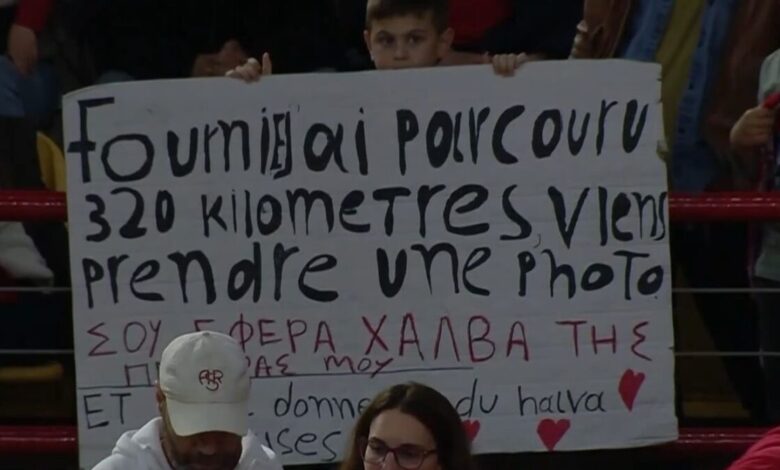 Fournie j'ai parcouru
320 kilometres, viens
prendre une photo.
ΣΟΥ ΕΦΕΡΑ ΧΑΛΒΑ ΤΗΣ
ΜΟΥ
ET donne du halva